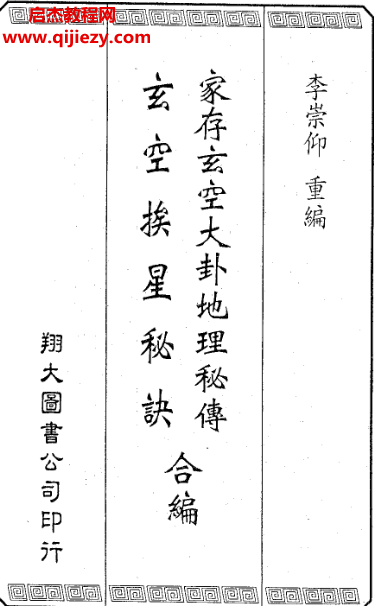 启杰教程网
www.qijiezy.com
李崇仰 重編
家存玄空大卦地理秘傳
玄空挨星秘訣
合編
翔大圖書公司印行